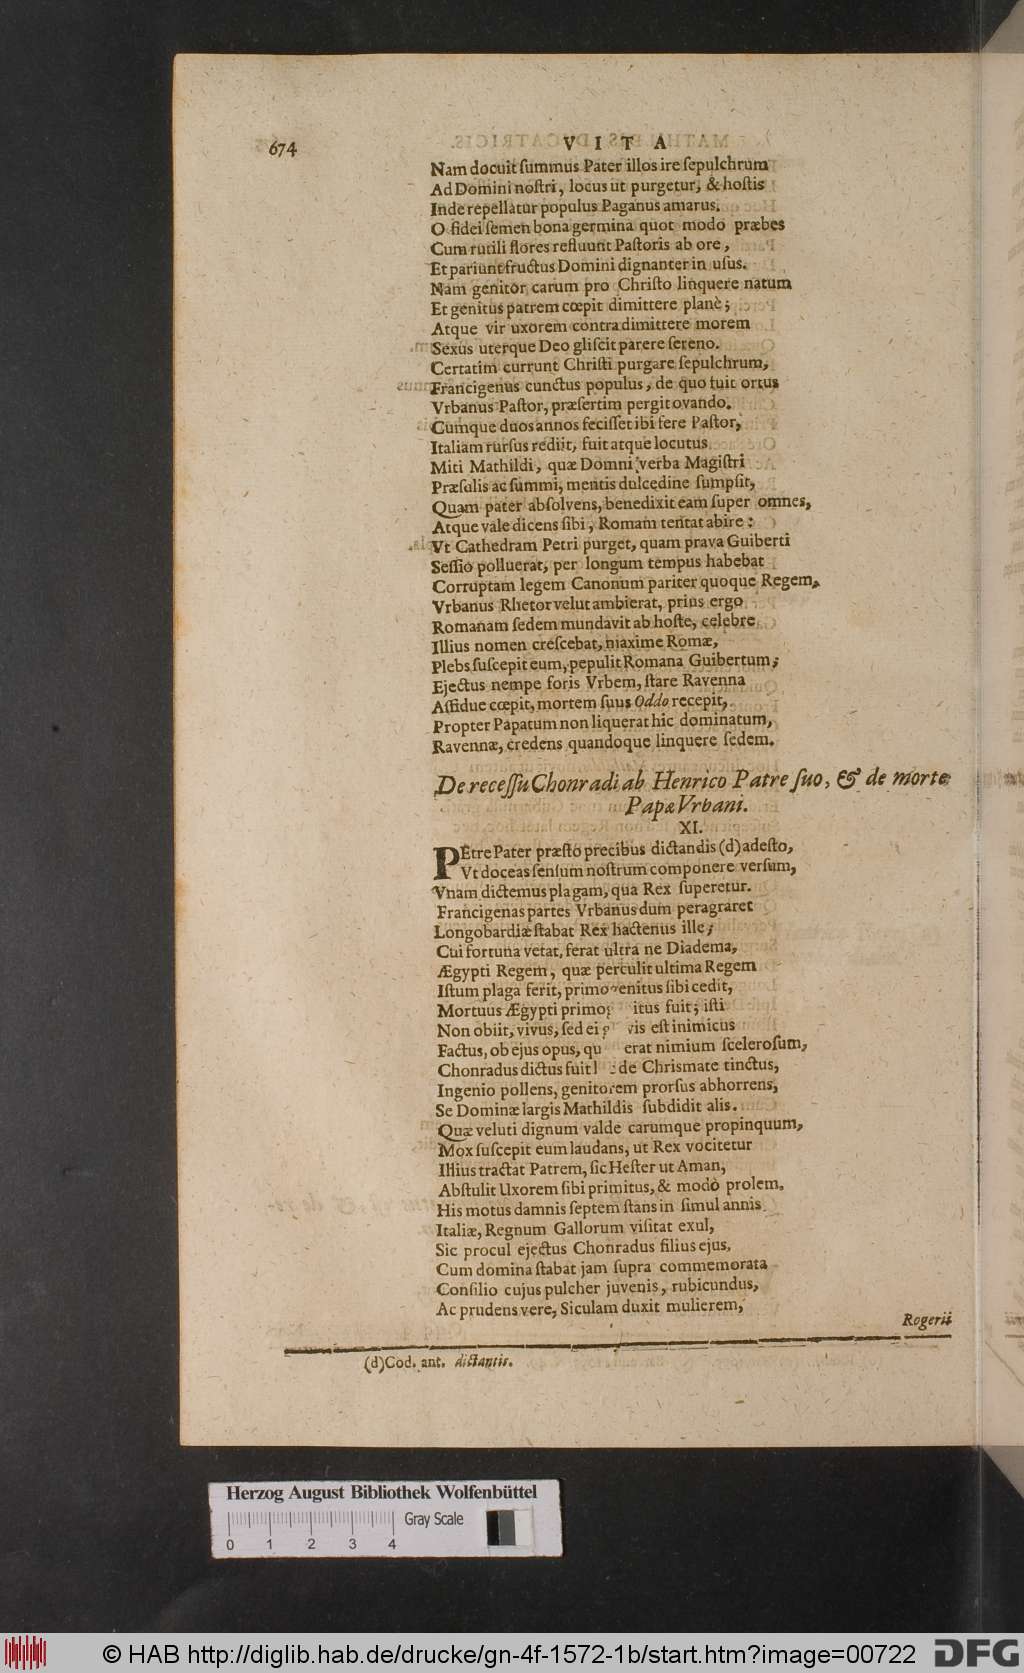 674
VITA
Nam docuit ſummus Pater illos ire ſepulchrum
Ad Domini noſtri, locus ut purgetur, & hoſtis
Inde repellatur populus Paganus amarus.
O fidei ſemen bona germina quot modo præbes
Cum rutili flores refluunt Paſtoris ab ore,
Et pariunt fructus Domini dignanter in uſus.
Nam genitor carum pro Chriſto linquere natum
Et genitus patrem cœpit dimittere planè;
Atque vir uxorem contra dimittere morem
Sexus uterque Deo gliſcit parere ſereno.
Certatim currunt Chriſti purgare ſepulchrum,
Francigenus cunctus populus, de quo fuit ortus
Vrbanus Paſtor, præſertim pergit ovando.
Cumque duos annos feciſſet ibi fere Paſtor,
Italiam rurſus rediit, fuit atque locutus
Miti Mathildi, quæ Domni verba Magiſtri
Præſulis ac ſummi, mentis dulcedine ſumpſit,
Quam pater abſolvens, benedixit eam ſuper omnes,
Atque vale dicens ſibi, Romam tentat abire:
Vt Cathedram Petri purget, quam prava Guiberti
Seſſio polluerat, per longum tempus habebat
Corruptam legem Canonum pariter quoque Regem,
Vrbanus Rhetor velut ambierat, prius ergo
Romanam ſedem mundavit ab hoſte, celebre
Illius nomen creſcebat, maxime Romæ,
Plebs ſuſcepit eum, pepulit Romana Guibertum;
Ejectus nempe foris Vrbem, ſtare Ravenna
Aſſidue cœpit, mortem ſuus Oddo recepit,
Propter Papatum non liquerat hic dominatum,
Ravennæ, credens quandoque linquere ſedem.
De receſſu Chonradi ab Henrico Patre ſuo, & de morte
Papæ Vrbani.
XI.
PEtre Pater præſto precibus dictandis (d) adeſto,
Vt doceas ſenſum noſtrum componere verſum,
Vnam dictemus plagam, qua Rex ſuperetur.
Francigenas partes Vrbanus dum peragraret
Longobardiæ ſtabat Rex hactenus ille;
Cui fortuna vetat, ferat ultra ne Diadema,
Ægypti Regem, quæ perculit ultima Regem
Iſtum plaga ferit, primogenitus ſibi cedit,
Mortuus Ægypti primog itus fuit; iſti
Non obiit, vivus, ſed ei vis eſt inimicus
Factus, ob ejus opus, qu erat nimium ſceleroſum,
Chonradus dictus fuit de Chriſmate tinctus,
Ingenio pollens, genitorem prorſus abhorrens,
Se Dominæ largis Mathildis ſubdidit alis.
Quæ veluti dignum valde carumque propinquum,
Mox ſuſcepit eum laudans, ut Rex vocitetur
Illius tractat Patrem, ſic Heſter ut Aman,
Abſtulit Uxorem ſibi primitus, & modò prolem.
His motus damnis ſeptem ſtans in ſimul annis
Italiæ, Regnum Gallorum viſitat exul,
Sic procul ejectus Chonradus filius ejus,
Cum domina ſtabat jam ſupra commemorata
Conſilio cujus pulcher juvenis, rubicundus,
Ac prudens vere, Siculam duxit mulierem,
Rogerii
(d) Cod. ant. dictantis.
Herzog August Bibliothek Wolfenbüttel
Gray Scale
0 1 2 3 4
© HAB http://diglib.hab.de/drucke/gn-4f-1572-1b/start.htm?image=00722
DFG